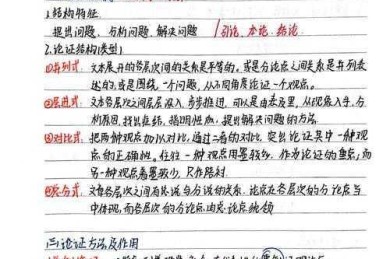 1.结构特征
提出问题、分析问题、解决问题 / 引论、本论、结论
2.论证结构类型
①并列式:文本展开的各层次间的关系是平等的。或是分论点之间关系是并列表
达的,或是围绕一个问题,从不同角度论证一个观点。
②层进式:文本各层次之间层层深入、步步推进,可以是由表及里,从现象入手,分
析原因,找出症结,指明性质,提出解决问题的方法。
③对比式:把两种观点加以对比,通过二者的对比,突出论证其中一种观
点的正确性。往往一种观点用墨较多,作为论证的重点,而
另一种观点着墨较少,只作陪衬
④总分式:文章各层次之间有总说与分说的关系。论点在各层次的分论点
中体现,而各层次的分论点由总论点统领
三.论证方法及作用